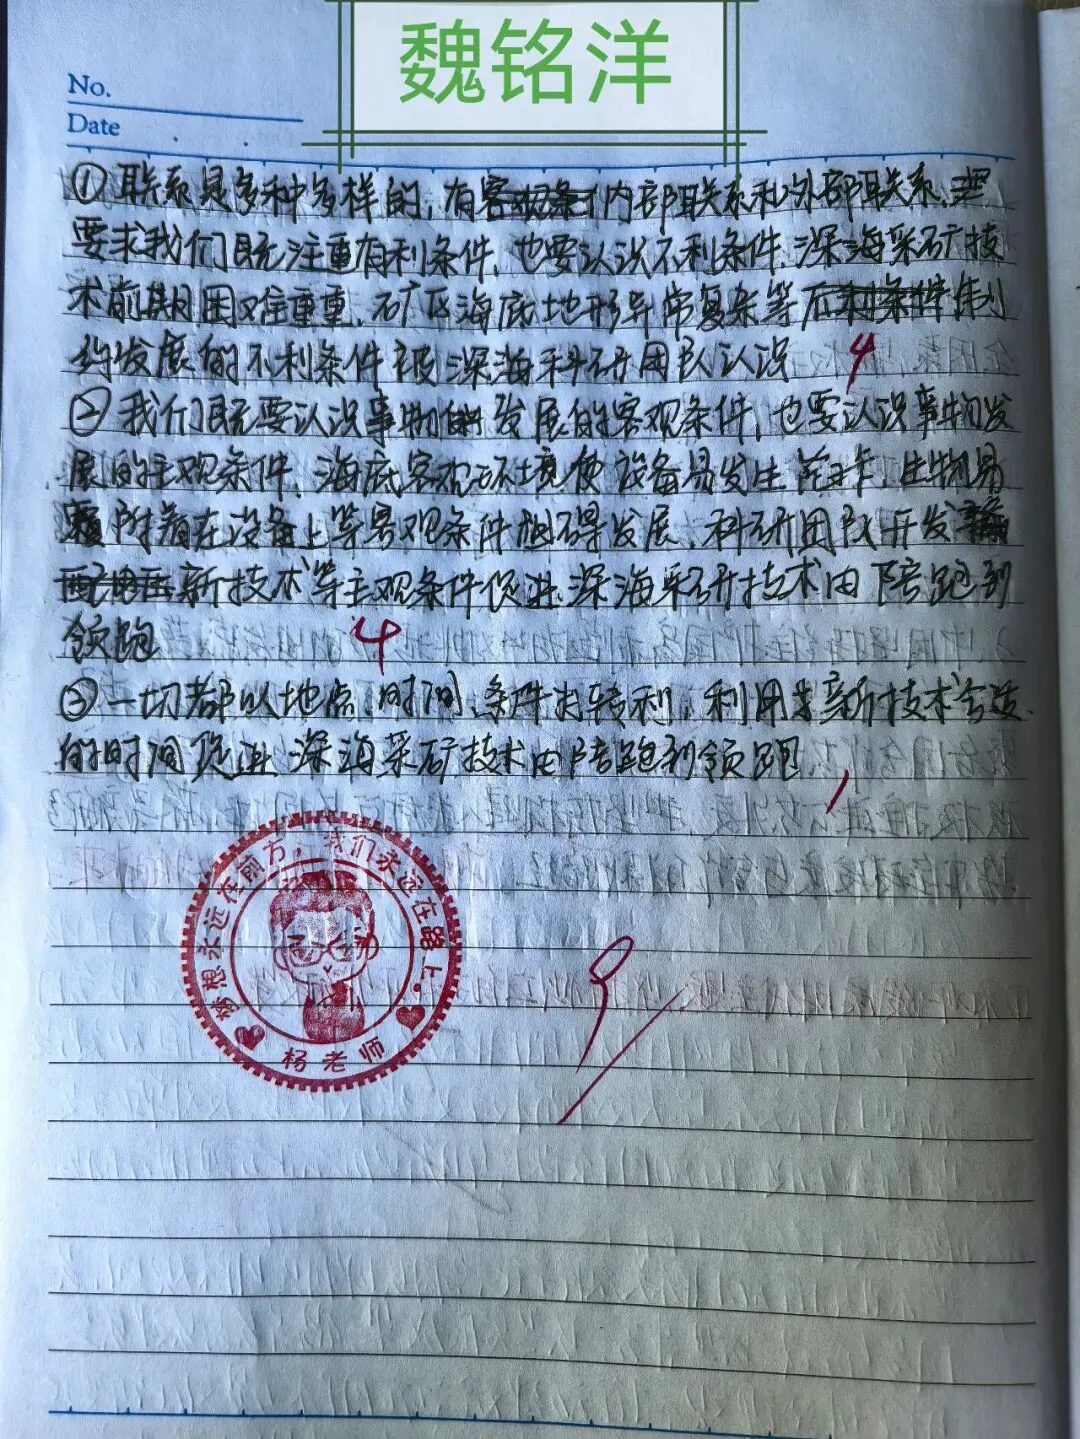 魏铭洋
No.
Date
①联系是多种多样的,有内部联系和外部联系,
要求我们既注重有利条件,也要认识不利条件,深海采矿技
术前期困难重重,矿区海底地形异常复杂等制
约发展的不利条件被深海科研团队认识
4
②我们既要认识事物发展的客观条件,也要认识事物发
展的主观条件,海底客观环境使设备易发生,生物易
附着在设备上等客观条件阻碍发展,科研团队开发
新技术等主观条件促进深海采矿技术由陪跑到
领跑
4
③一切都以地点、时间、条件为转利,利用新技术合适
的时间促进深海采矿技术由陪跑到领跑
1
梦想永远在前方,我们永远在路上。
杨老师
9